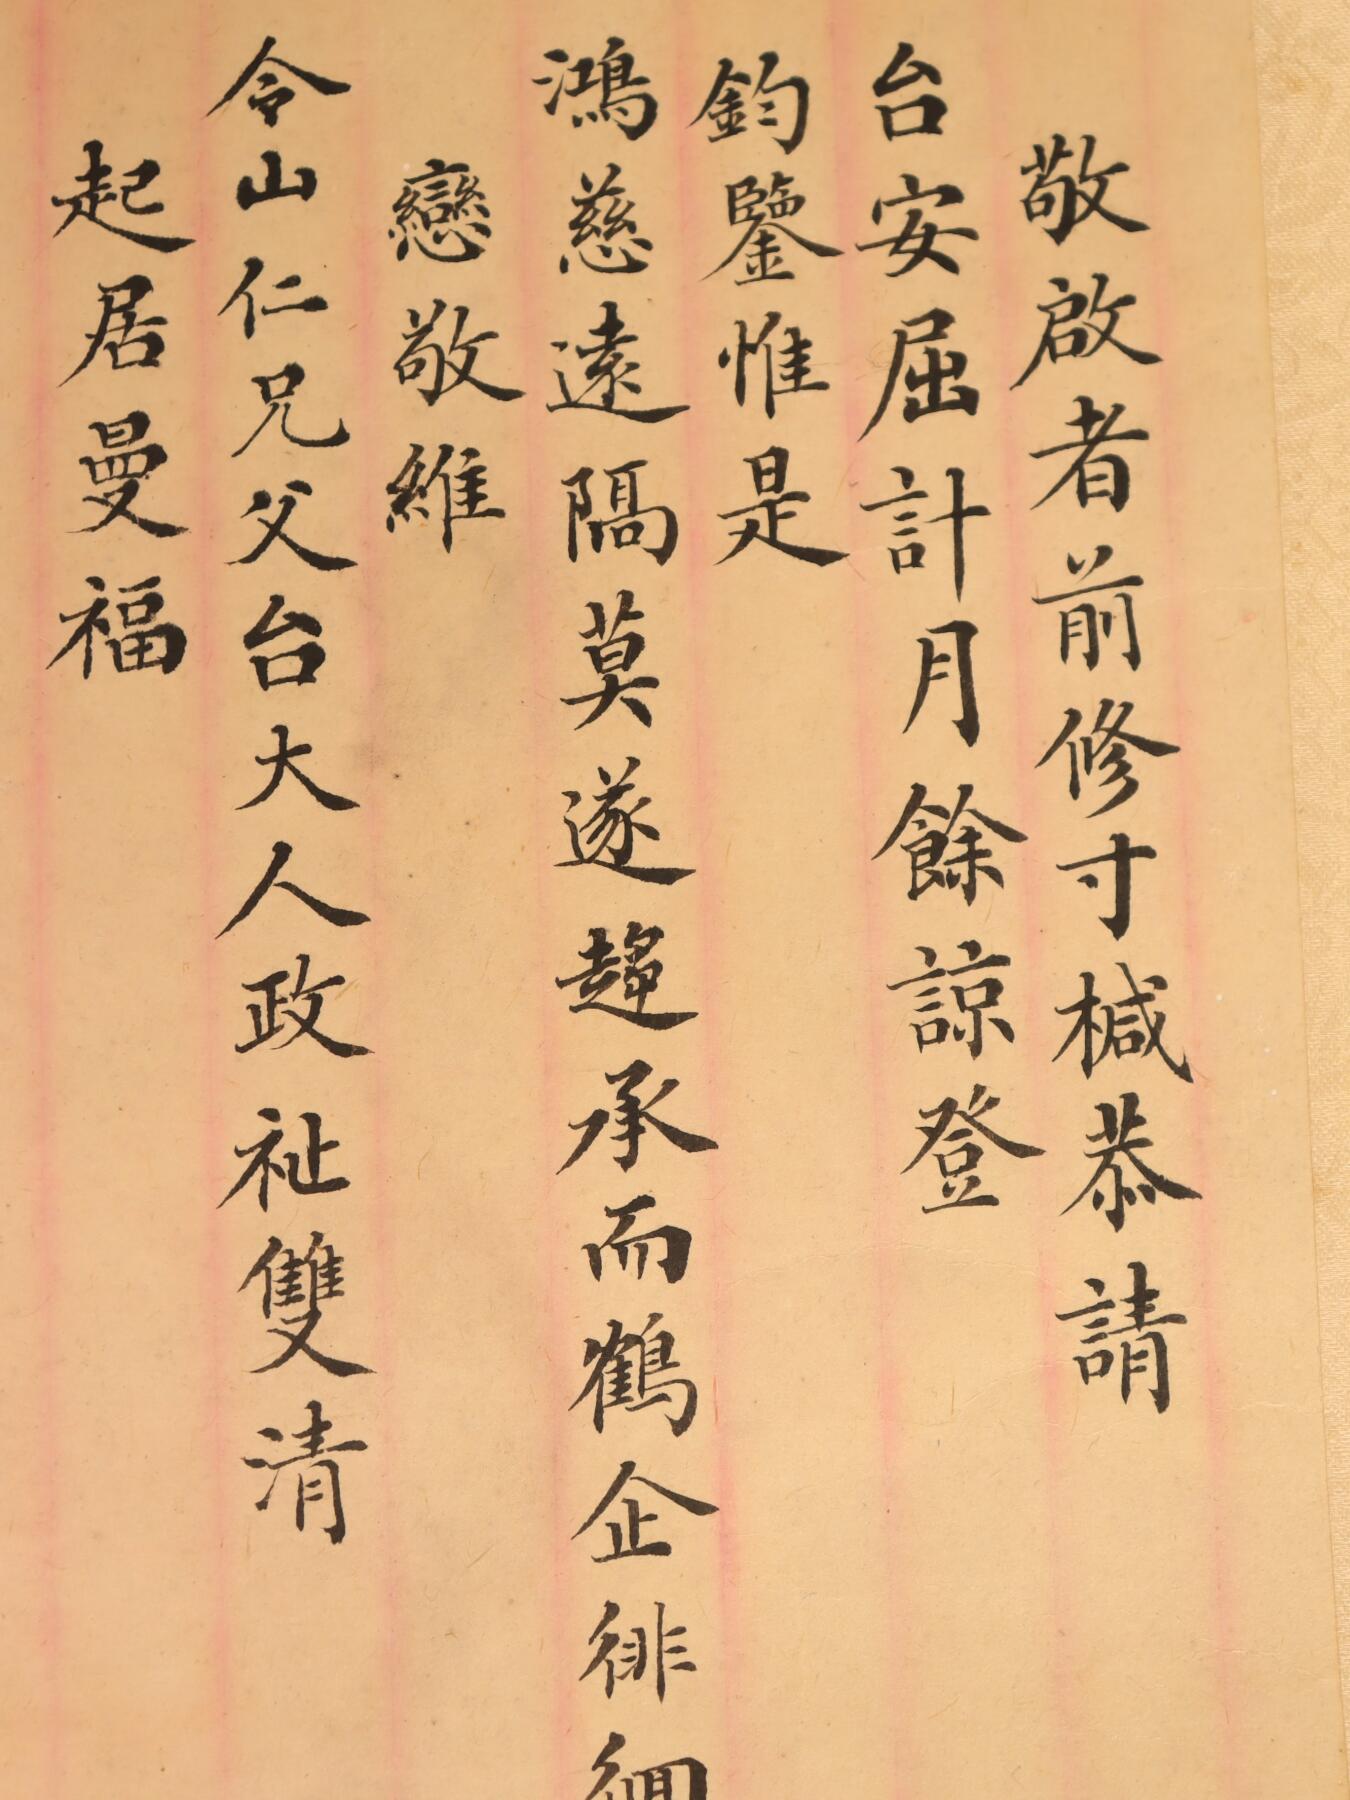 敬啟者前修寸椷恭請
台安屈計月餘諒登
鈞鑒惟是
鴻慈遠隔莫遂趨承而鶴企徘徊
戀敬維
令山仁兄父台大人政祉雙清
起居曼福